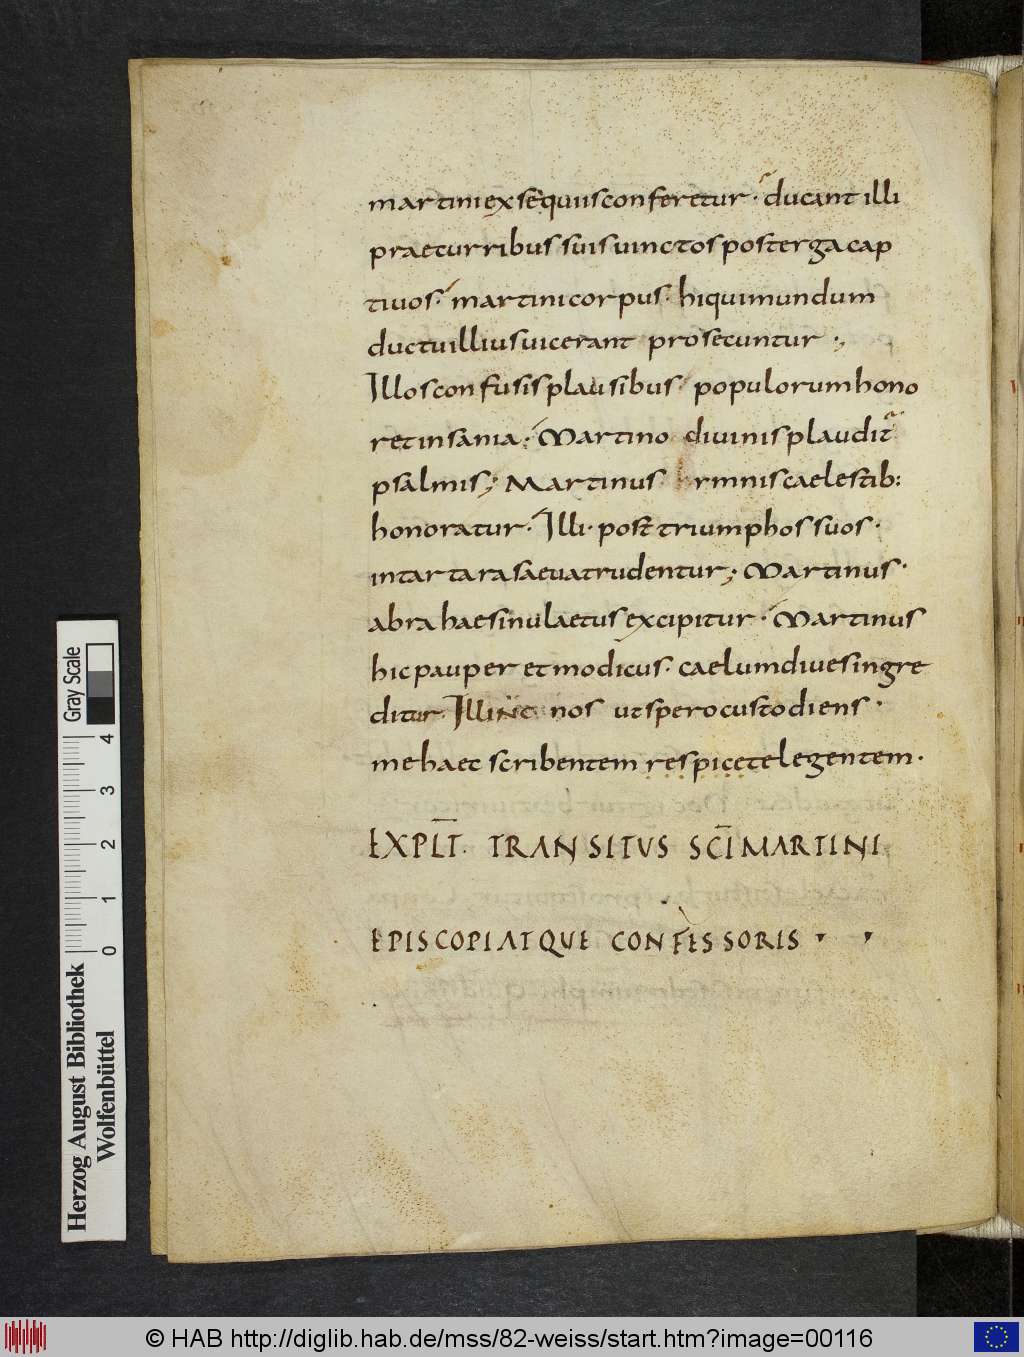 martini exsequiis conferetur · ducant illi
prae curribus suis uinctos post terga cap
tiuos · martini corpus · hi qui mundum
ductu illius uicerant prosecuntur ·,
Illos confusis plausibus populorum hono
ret insania ; Martino diuinis plaudit
psalmis ; Martinus rmnis caelestib:
honoratur · Illi · post triumphos suos ·
in tartara saeua trudentur ; Martinus ·
abrahae sinu laetus excipitur · Martinus
hic pauper et modicus · caelum diues ingre
ditur Illinc nos ut spero custodiens ·
me haec scribentem respice te legentem ·
EXPLT̅ · TRANSITUS SCI̅ MARTINI
EPISCOPI ATQUE CONFESSORIS
Herzog August Bibliothek
Wolfenbüttel
Gray Scale
0 1 2 3 4
© HAB http://diglib.hab.de/mss/82-weiss/start.htm?image=00116